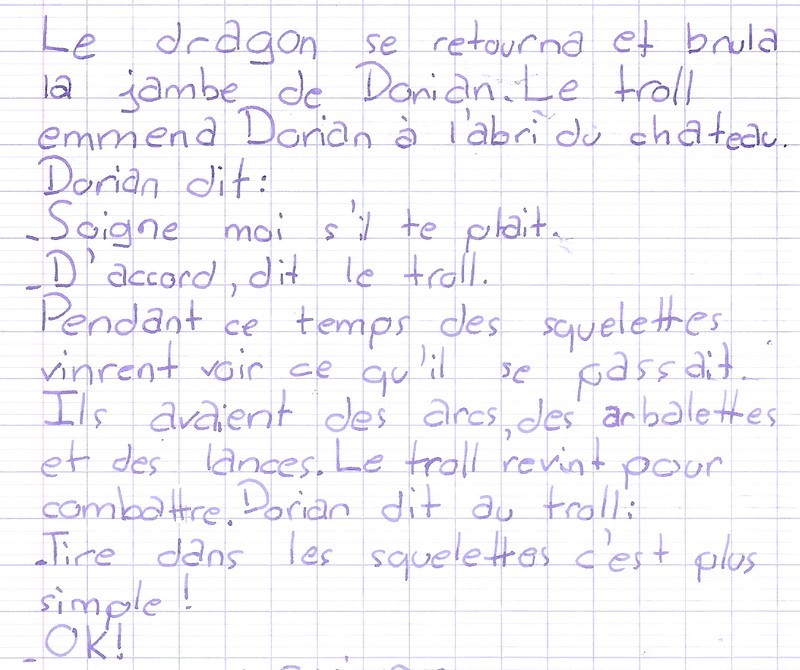 Le dragon se retourna et brula
la jambe de Dorian. Le troll
emmena Dorian à l'abri du chateau.
Dorian dit:
-Soigne moi s'il te plait.
-D'accord, dit le troll.
Pendant ce temps des squelettes
vinrent voir ce qu'il se passait.
Ils avaient des arcs, des arbalettes
et des lances. Le troll revint pour
combattre. Dorian dit au troll:
-Tire dans les squelettes c'est plus
simple !
-OK!